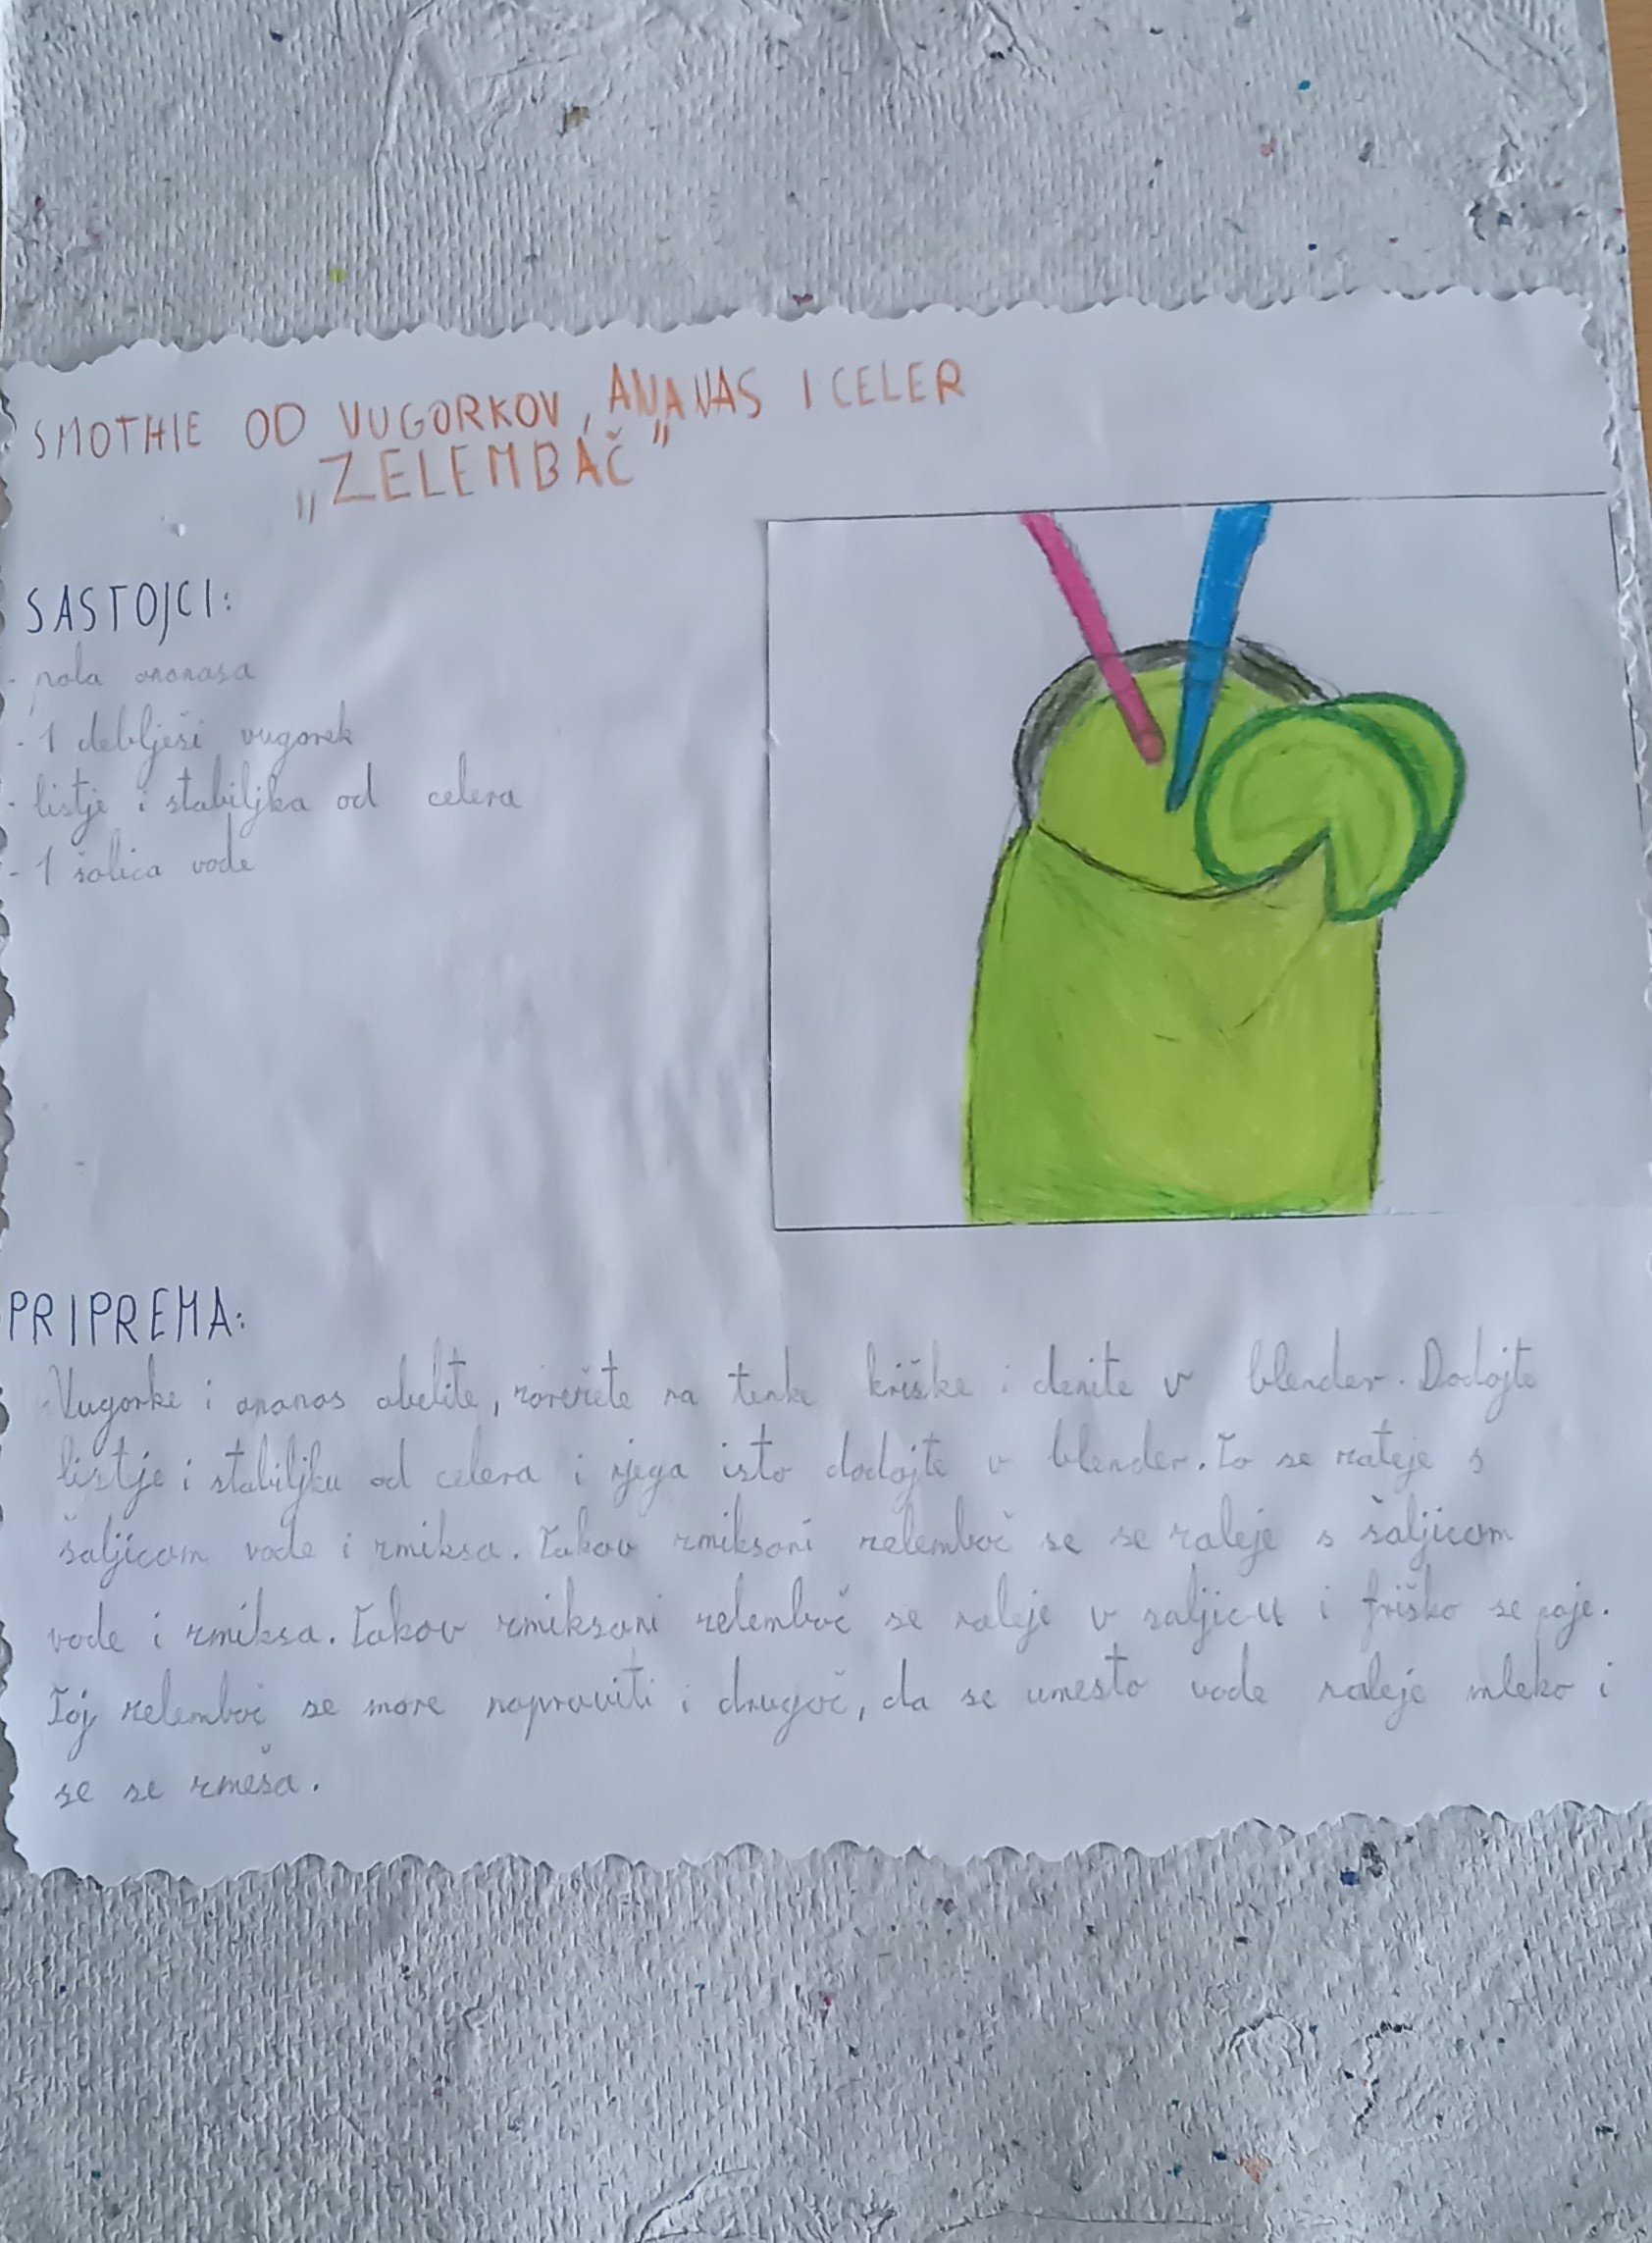 SMOTHIE OD VUGORKOV, ANANAS I CELER
„ZELEMBAČ”
SASTOJCI:
- pola ananasa
- 1 deblješi vugorek
- listje i stabiljka od celera
- 1 šalica vode
PRIPREMA:
Vugorke i ananas obelite, zarežite na tenke kriške i denite v blender. Dodajte
listje i stabiljku od celera i njega isto dodajte v blender. To se zaleje s
šaljicom vode i zmiksa. Takov zmiksani zelembač se se zaleje s šaljicom
vode i zmiksa. Takov zmiksani zelembač se naleje v šaljicu i friško se poje.
Toj zelembač se more napraviti i drugač, da se umesto vode naleje mleko i
se se zmeša.